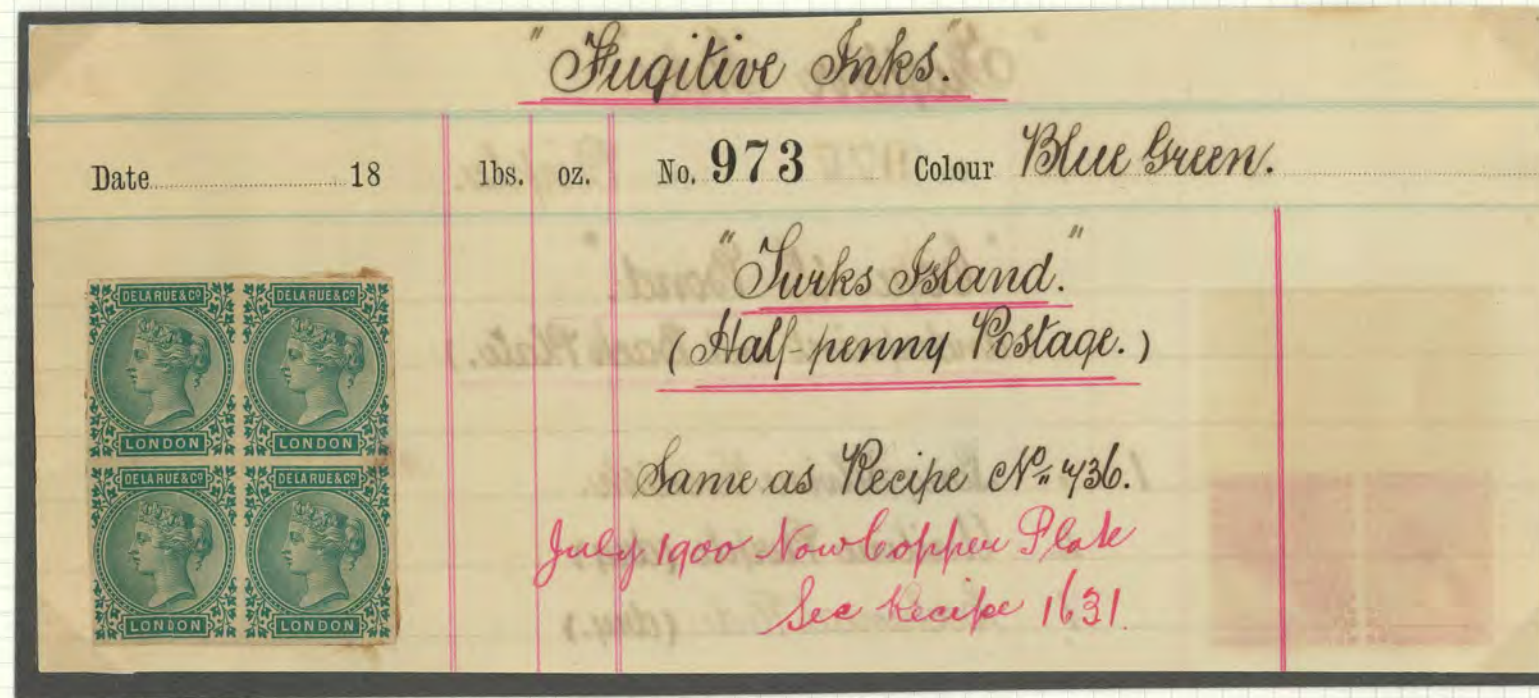 "Fugitive Inks."
Date 18 lbs. oz. No. 973 Colour Blue Green.
"Turks Island."
(Half-penny Postage.)
Same as Recipe No. 736.
July 1900 Now Copper Plate
See Recipe 1631.
DE LA RUE & CO DE LA RUE & CO
LONDON LONDON
DE LA RUE & CO DE LA RUE & CO
LONDON LONDON